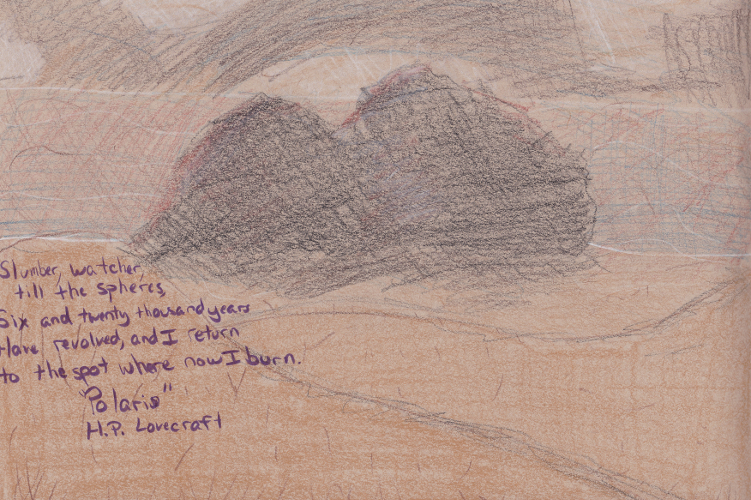 Slumber, watcher,
till the spheres,
Six and twenty thousand years
Have revolved, and I return
to the spot where now I burn.
"Polaris"
H.P. Lovecraft